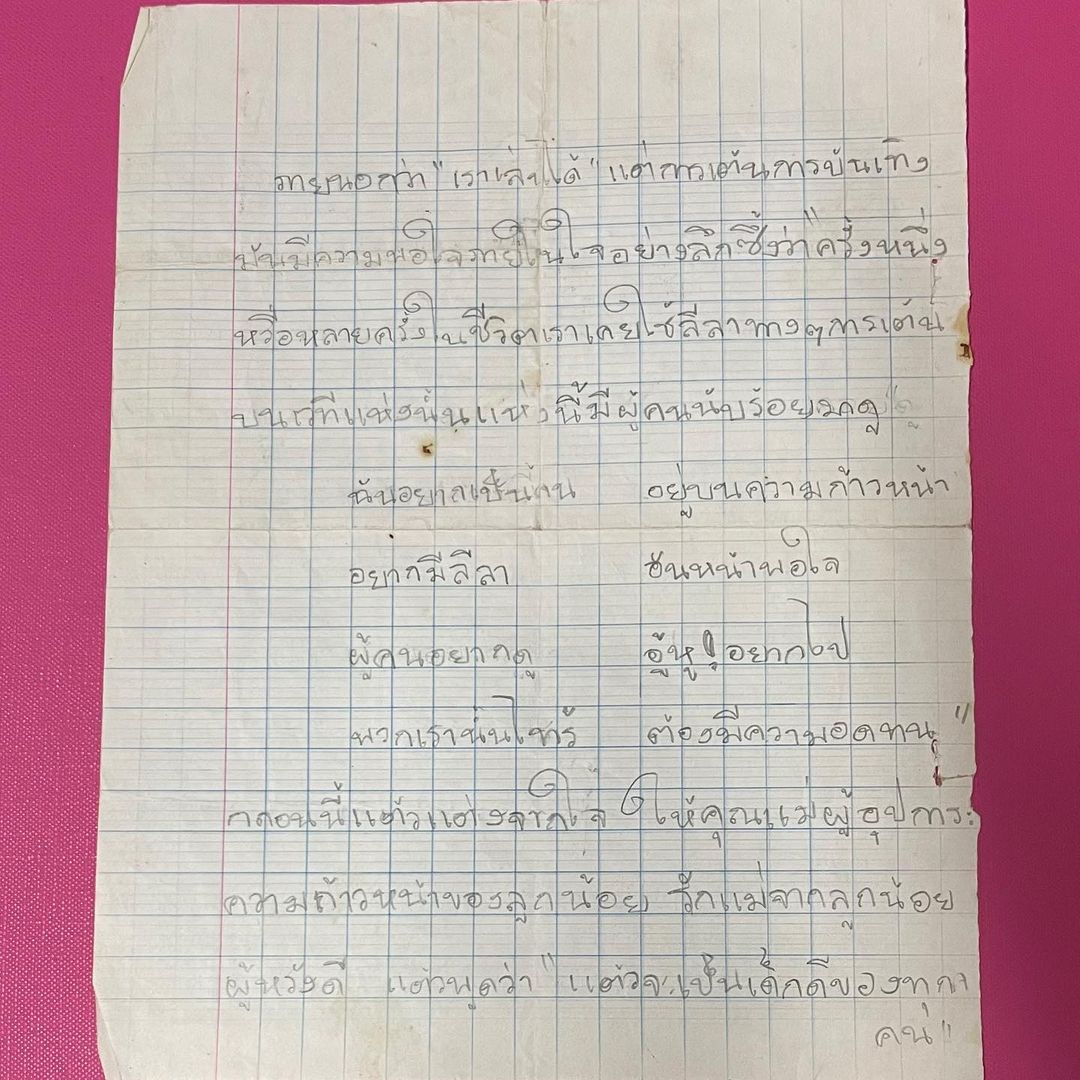 ภายนอกว่า "เราเล่นได้" แต่การเต้นการบันเทิง
มันมีความพอใจภายในใจอย่างลึกซึ้งว่า "ครั้งหนึ่ง
หรือหลายครั้งในชีวิตเราเคยใช้ลีลาทางการเต้น
บนเวทีแห่งนั้นแห่งนี้มีผู้คนนับร้อยมาดู
ฉันอยากเป็นคน อยู่บนความก้าวหน้า
อยากมีลีลา อันหน้าพอใจ
ผู้คนอยากดู อู้หู! อยากไป
พวกเรานั่นไซร้ ต้องมีความอดทน"
กลอนนี้แต้วแต่งจากใจ ให้คุณแม่ผู้อุปการะ
ความก้าวหน้าของลูกน้อย รักแม่จากลูกน้อย
ผู้หวังดี แต้วพูดว่า "แต้วจะเป็นเด็กดีของทุกๆ
คน"